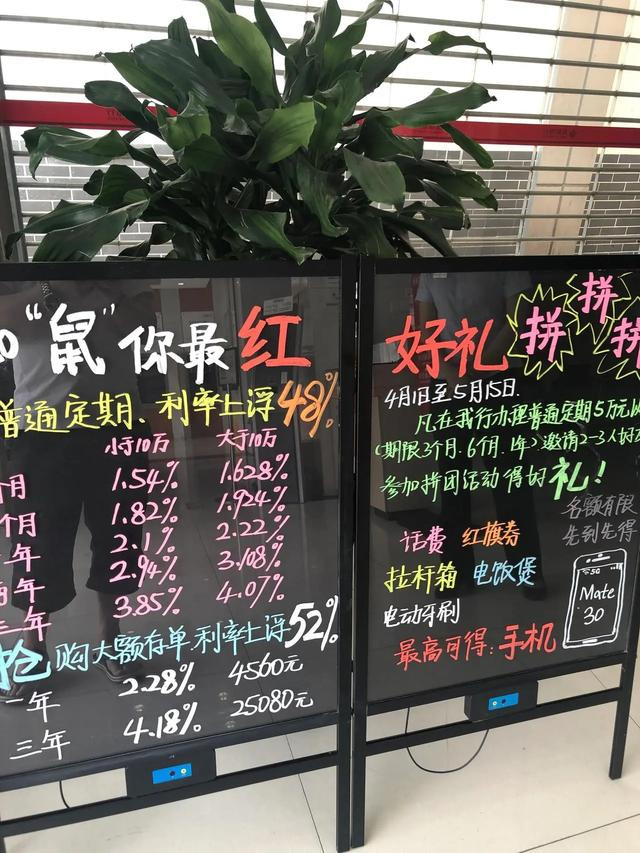 0 "鼠"你最红
普通定期、利率上浮48%
小于10万 大于10万
个月 1.54% 1.628%
个月 1.82% 1.924%
年 2.1% 2.22%
两年 2.94% 3.108%
三年 3.85% 4.07%
抢购大额存单、利率上浮52%
一年 2.28% 4560元
三年 4.18% 25080元
好礼拼拼拼
4月1日至5月15日.
凡在我行办理普通定期5万元以
(期限3个月、6个月、1年)邀请2-3人好友
参加拼团活动得好礼!
名额有限
先到先得
话费 红旗券
拉杆箱 电饭煲
电动牙刷
最高可得:手机
5G
Mate
30